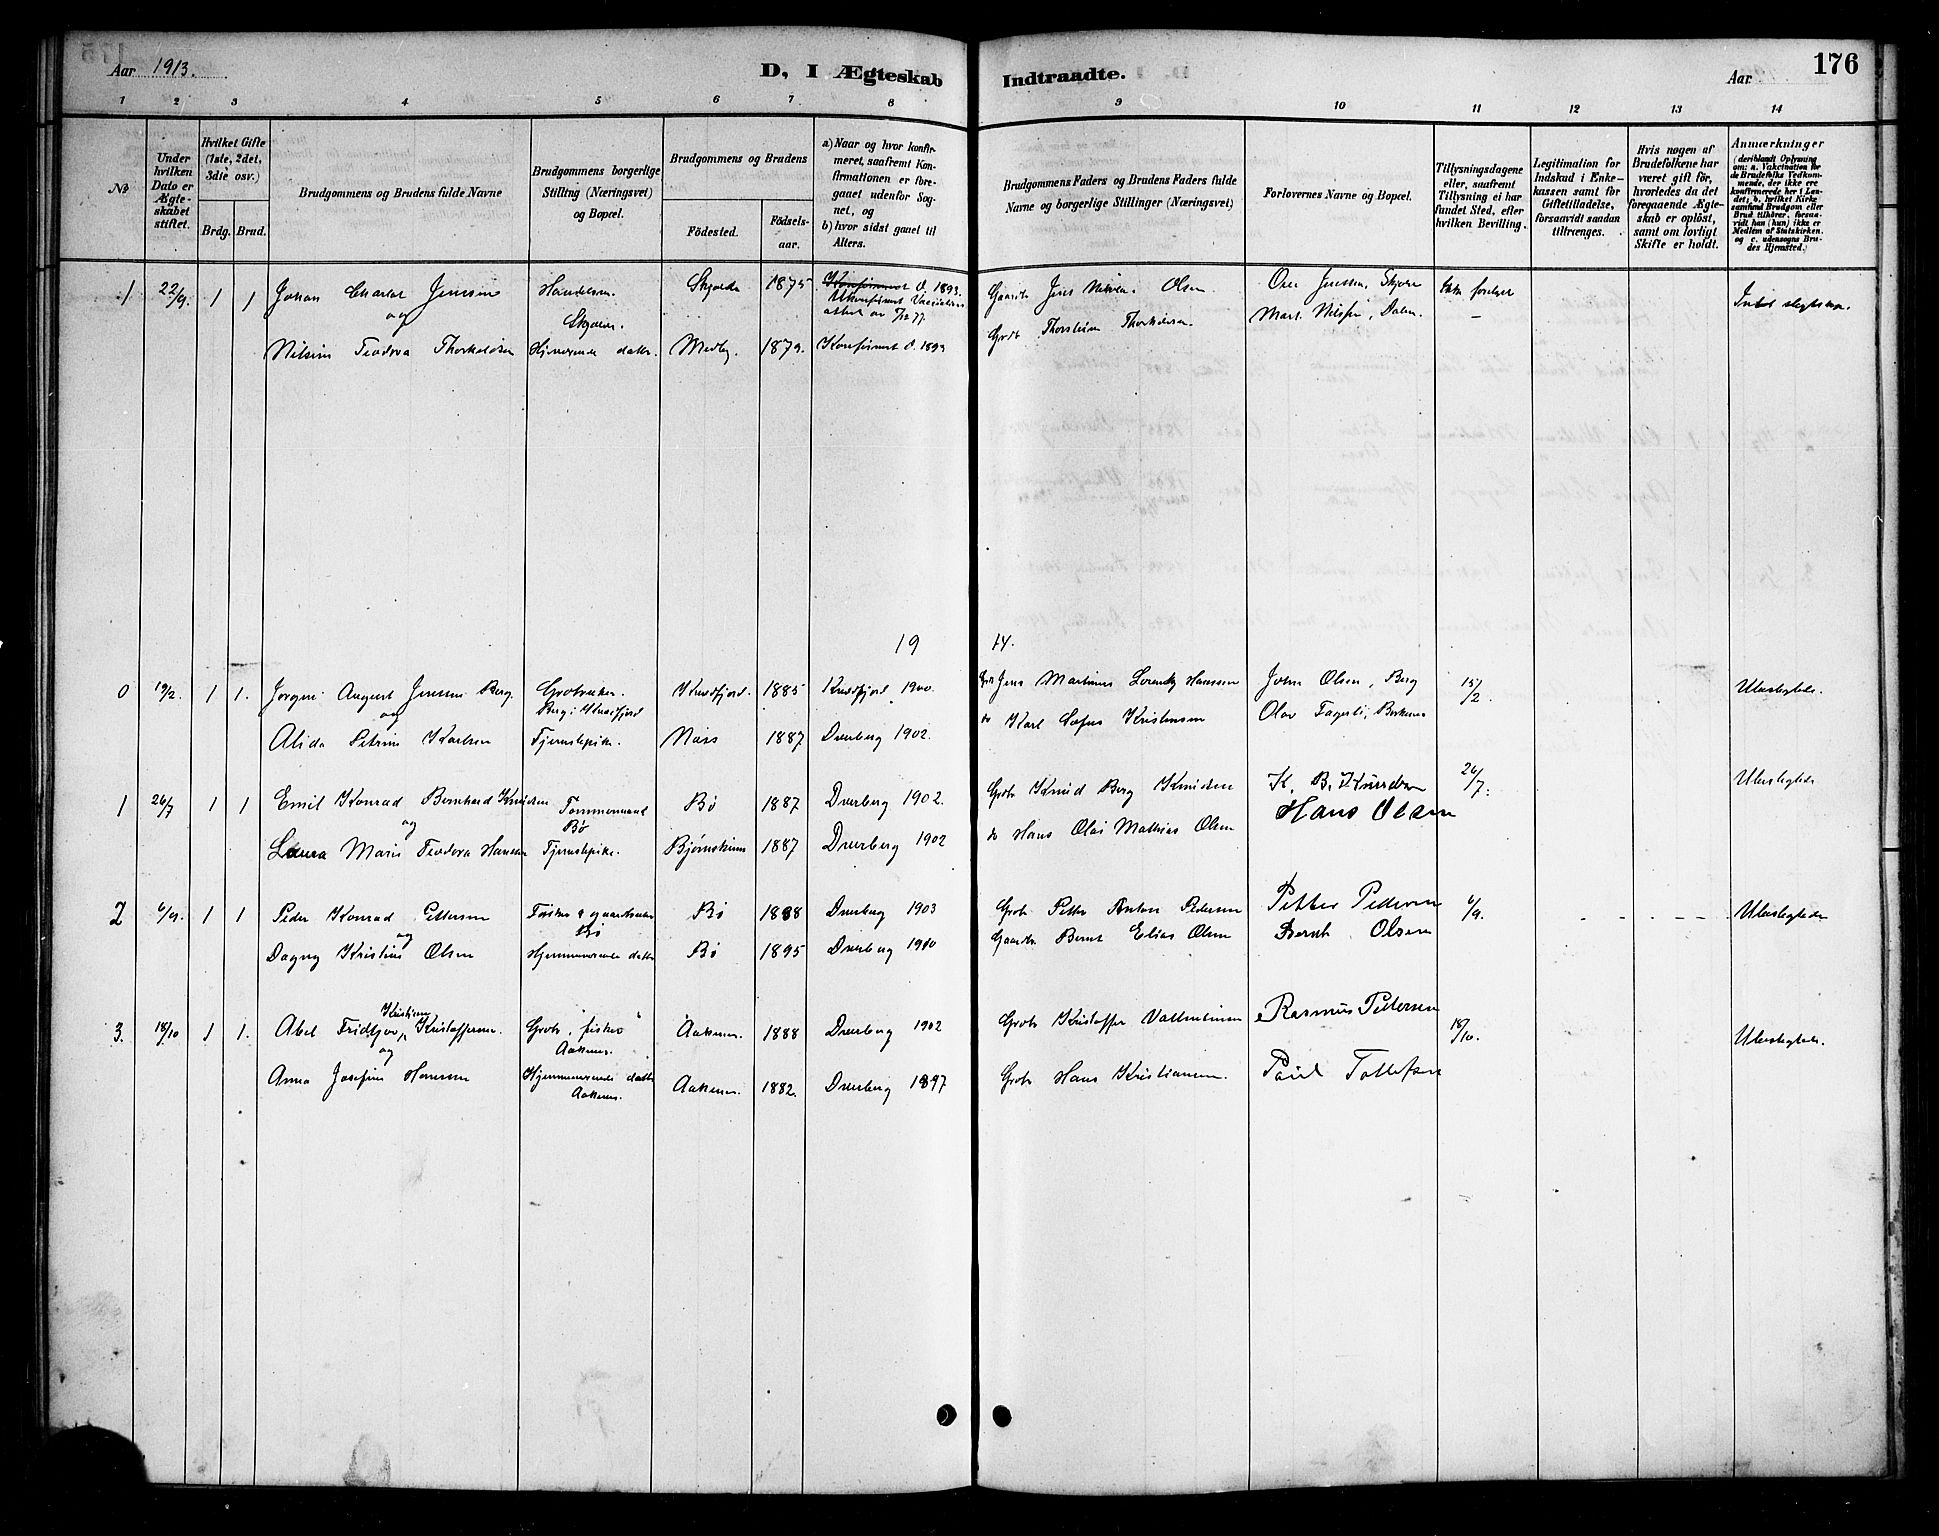 Aar 1913.
D, I Ægteskab Indtraadte.
Aar
176
1 2 3 4 5 6 7. 8 9 10 11 12 13 14
No
Under hvilken Dato er Ægteskabet stiftet.
Hvilket Gifte (1ste, 2det, 3die osv.)
Brdg. Brud.
Brudgommens og Brudens fulde Navne
Brudgommens borgerlige Stilling (Næringsvei) og Bopæl.
Brudgommens og Brudens
Födested.
Födselsaar.
a) Naar og hvor konfirmeret, saafremt Konfirmationen er foregaaet udenfor Sognet, og
b) hvor sidst gaaet til Alters.
Brudgommens Faders og Brudens Faders fulde Navne og borgerlige Stillinger (Næringsvei)
Forlovernes Navne og Bopæl.
Tillysningsdagene eller, saafremt Tillysning ei har fundet Sted, efter hvilken Bevilling.
Legitimation for Indskud i Enkekassen samt for Giftetilladelse, forsaavidt saadan tiltrænges.
Hvis nogen af Brudefolkene har været gift för, hvorledes da det foregaaende Ægteskab er oplöst, samt om lovligt Skifte er holdt.
Anmærkninger
(deriblandt Oplysning om: a. Vakcination for de Brudefolks Vedkommende, der ikke ere konfirmerede her i Landet; b. hvilket Kirkesamfund Brudgom eller Brud tilhörer, forsaavidt han (hun) ikke er Medlem af Statskirken. og c. udensogns Brudes Hjemsted.)
1 22/9. 1 1 Johan Jensen Skjolde 1875 Konfirmert D. 1893. Jens Nikolai Olsen Jenssen, Skjolde
og Ukonfirmert
Nilsine Teodora Thorkeldsen Hjemværende datter. Medby. 1879. Konfirmert D. 1893 Thorstein Mart. Nilssen, Dalen. —
19 14.
0 19/2. 1 1. Jørgen August Jenssen Berg. Kvæfjord. 1885 Kvæfjord 1900. Jens Martinus Hanssen John Olsen, Berg 15/2 Ubeslegtede.
og Berg i Kvæfjord
Alida Petrine Karlsen Tjenestepike. Nøss 1887 Dverberg 1902. do Karl Sofus Kristensen Olav Fagerli,
1 26/7 1 1 Emil Konrad Bernhard Knudsen Tømmermand Bø 1887 Dverberg 1902. Grbr. Knud Berg Knudsen K. B. Knudsen 26/7. Ubeslegtede
og Bø
Laura Marie Teodora Hansen Tjenestepike. Bjørnskinn 1887 Dverberg 1902 do Hans Olai Mathias Olsen Hans Olsen
2 6/9. 1 1 Peder Konrad Pettersen Fisker & gaardbruker Bø 1888 Dverberg 1903 Grbr. Petter Anton Pedersen Petter Pedersen 6/9. - - - - - - Ubeslegtede
og Bø
Dagny Kristine Olsen Hjemmeværende datter Bø 1895 Dverberg 1910 Gaardbr. Bernt Elias Olsen Bernt Olsen
3. 18/10 1 1. Abel Fridtjov Kristian Kristoffersen. Grbr., fisker Aaknes. 1888 Dverberg 1902 Grbr. Kristoffer Vallentinsen Rasmus Petersen 18/10. Ubeslegtede.
og Aaknes.
Anna Josefine Hansen Hjemmeværende datter Aaknes. 1882. Dverberg 1897 Grbr. Hans Kristiansen. Paul Tollefsen
Aaknes.